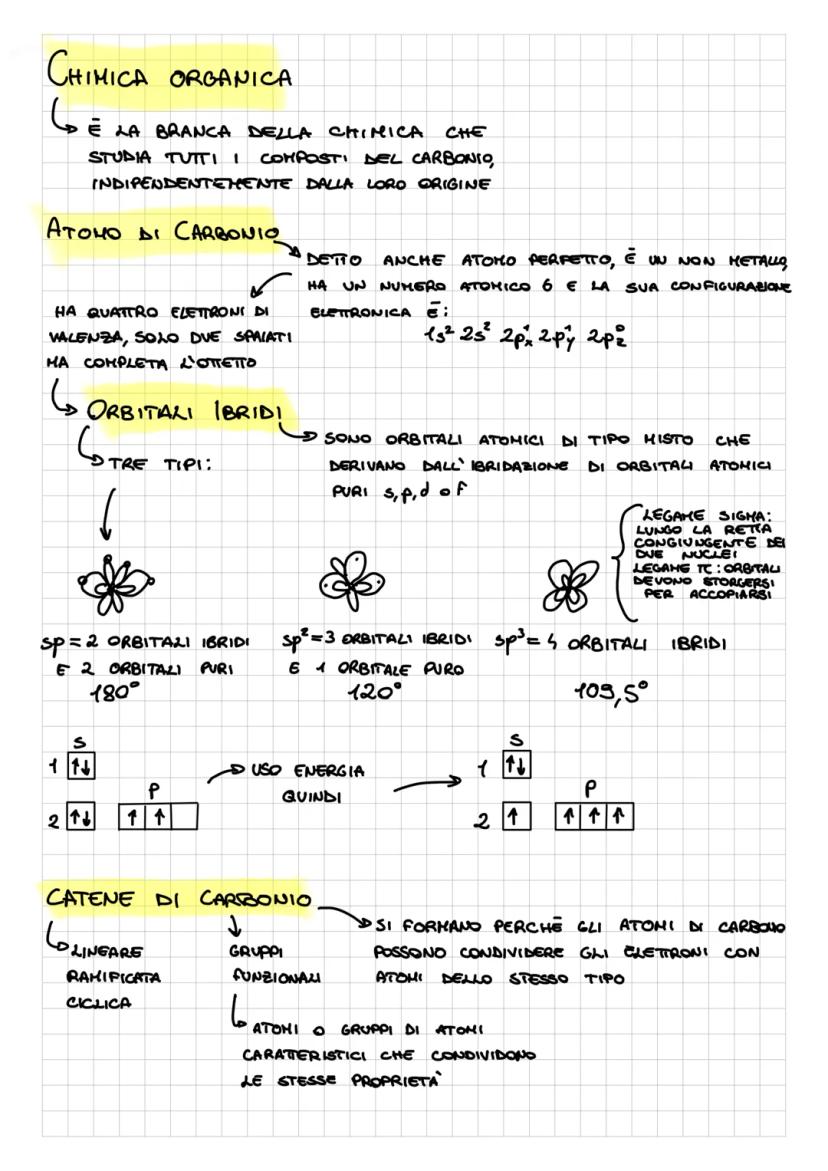 CHIMICA ORGANICA
Ē LA BRANCA DELLA CHIMICA CHE
STUDIA TUTTI I COMPOSTI DEL CARBONIO,
INDIPENDENTEMENTE DALLA LORO ORIGINE
ATOMO DI CARBONIO
DETTO ANCHE ATOMO PERFETTO, Ē UN NON METALLO,
HA UN NUMERO ATOMICO 6 E LA SUA CONFIGURAZIONE
ELETTRONICA Ē:
1s² 2s² 2p¹ₓ 2p¹y 2p⁰z
HA QUATTRO ELETTRONI DI
VALENZA, SOLO DUE SPAIATI
MA COMPLETA L'OTTETTO
ORBITALI IBRIDI
SONO ORBITALI ATOMICI DI TIPO MISTO CHE
DERIVANO DALL'IBRIDAZIONE DI ORBITALI ATOMICI
PURI s,p,d o f
TRE TIPI:
LEGAME SIGMA:
LUNGO LA RETTA
CONGIUNGENTE DEI
DUE NUCLEI
LEGAME π: ORBITALI
DEVONO STORGERSI
PER ACCOPIARSI
sp = 2 ORBITALI IBRIDI
E 2 ORBITALI PURI
180°
sp² = 3 ORBITALI IBRIDI
E 1 ORBITALE PURO
120°
sp³ = 4 ORBITALI IBRIDI
109,5°
S
1 ↑↓
P
2 ↑↓ ↑ ↑
USO ENERGIA
QUINDI
S
1 ↑↓
P
2 ↑ ↑ ↑ ↑
CATENE DI CARBONIO
SI FORMANO PERCHĒ GLI ATOMI DI CARBONIO
POSSONO CONDIVIDERE GLI ELETTRONI CON
ATOMI DELLO STESSO TIPO
LINEARE
RAMIFICATA
CICLICA
GRUPPI
FUNZIONALI
ATOMI O GRUPPI DI ATOMI
CARATTERISTICI CHE CONDIVIDONO
LE STESSE PROPRIETÀ